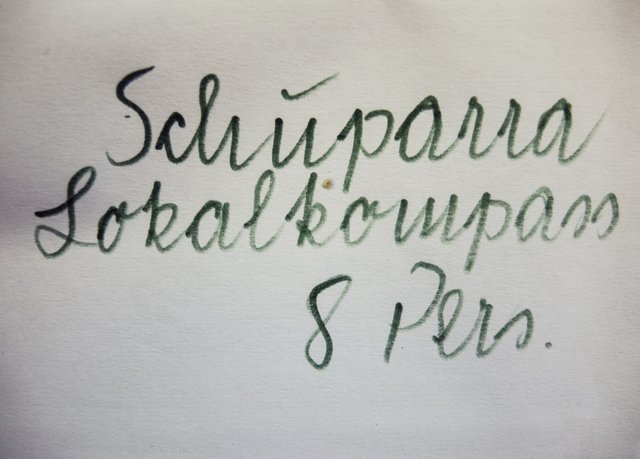 Schuparra
Lokalkompass
8 Pers.